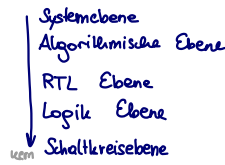 Systemebene
Algorithmische Ebene
RTL Ebene
Logik Ebene
Schaltkreisebene